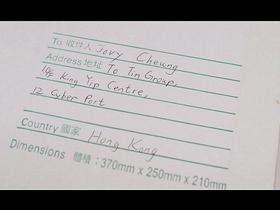 To 收件人 Jovy Cheung
Address地址 To Tin Group,
10/F King Yip Centre,
12 Cyber Port
Country 國家 Hong Kong
Dimensions 體積：370mm x 250mm x 210mm